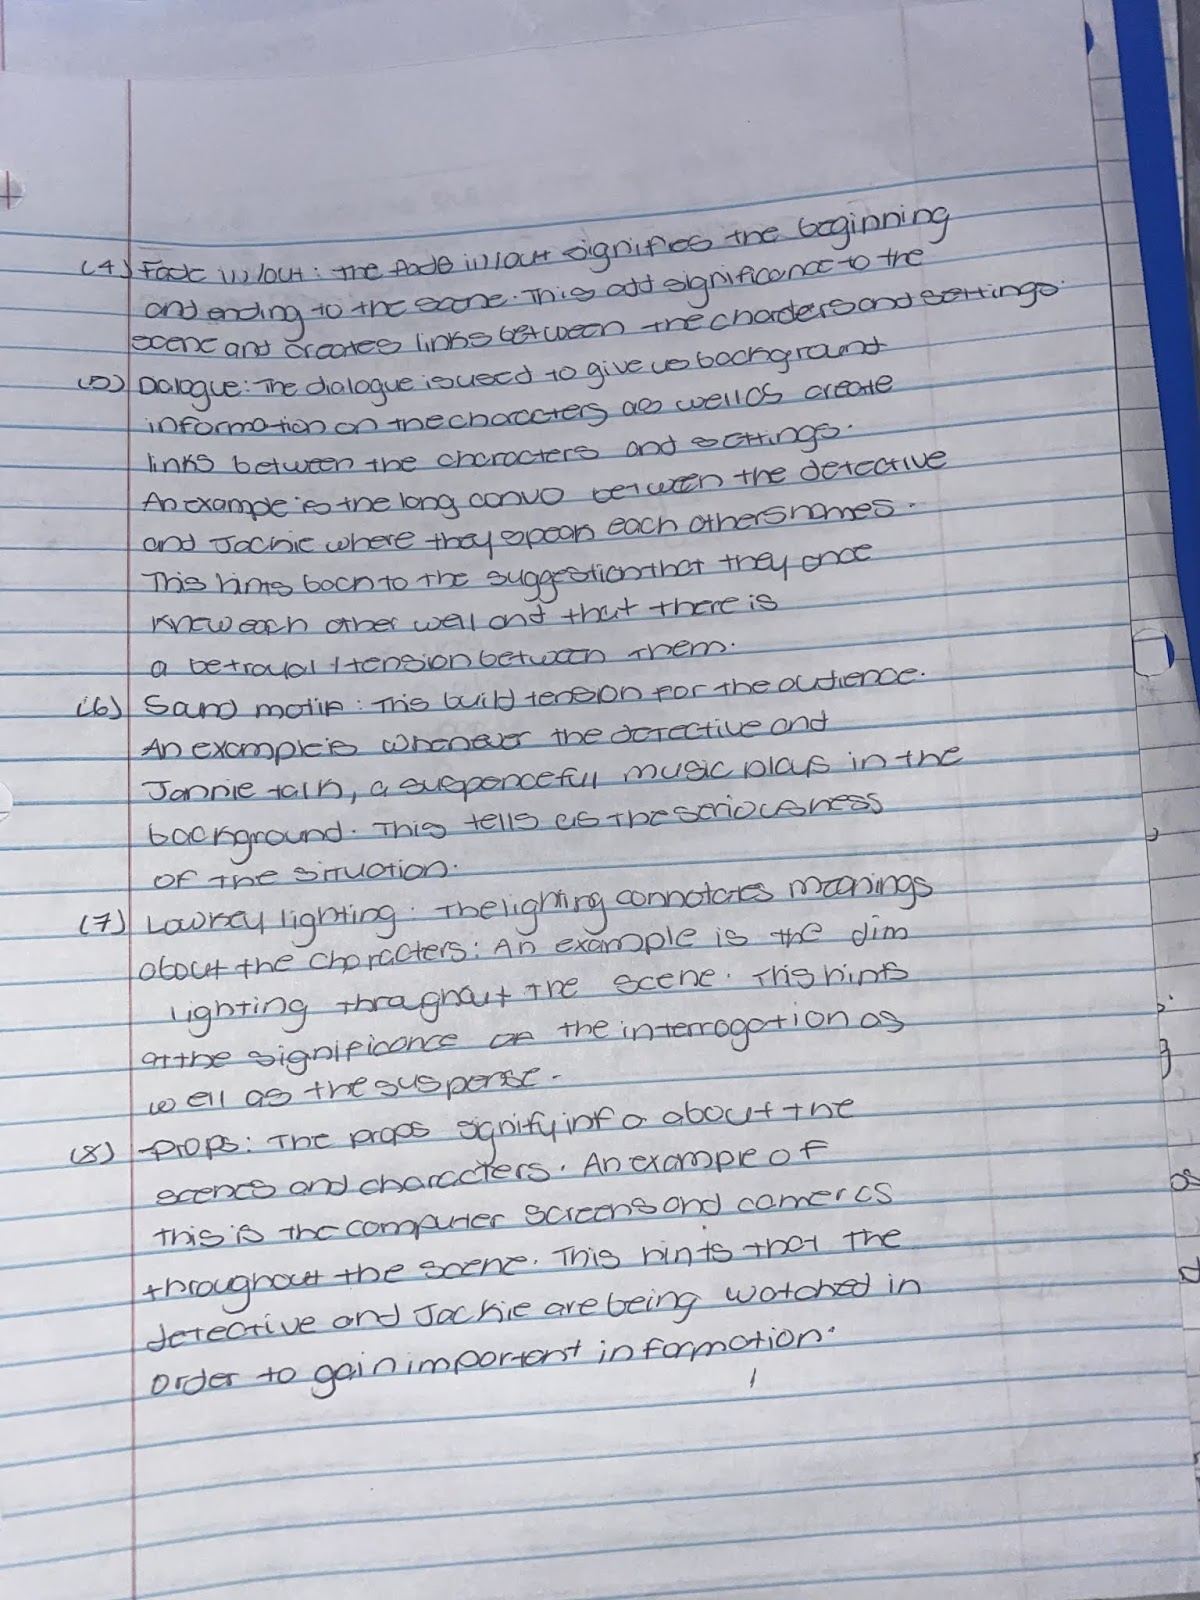 (4) Fade in/out: the fade in/out signifies the beginning
and ending to the scene. This add significance to the
scene and creates links between the charcters and settings.
(5) Dalogue: The dialogue is used to give us background
information on the characters as well as create
links between the characters and settings.
An example is the long convo between the detective
and Jackie where they speak each others names.
This hints back to the suggestion that they once
knew each other well and that there is
a betrayal/tension between them.
(6) Sound motif: This build tension for the audience.
An example is whenever the detective and
Jannie talk, a suspenceful music plays in the
background. This tells us the seriousness
of the situation.
(7) Lowkey lighting: The lighting connotates meanings
about the characters: An example is the dim
lighting throughout the scene. This hints
at the significance of the interrogation as
well as the suspense.
(8) Props: The props signify info about the
scenes and characters. An example of
this is the computer screens and cameras
throughout the scene. This hints that the
detective and Jackie are being watched in
order to gain important information.